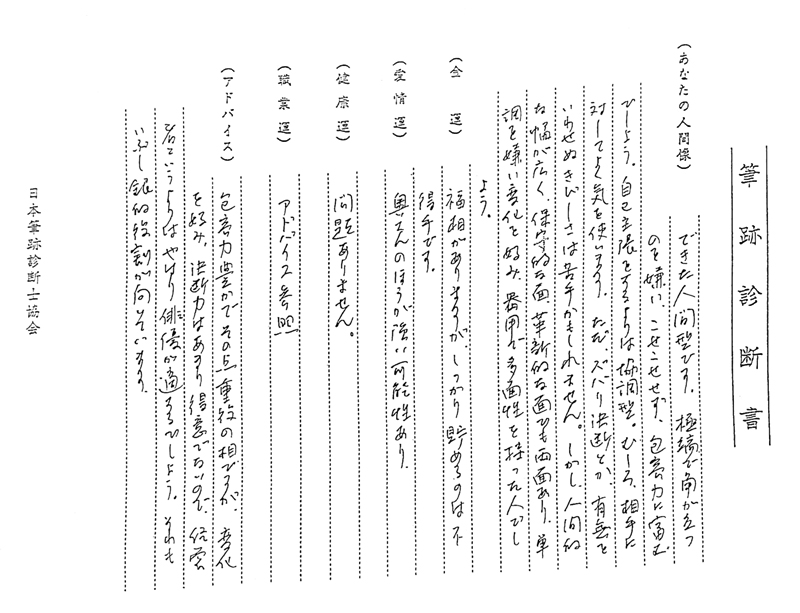 筆跡診断書
(あなたの人間像)
できた人間型です。極端で角が立つ
のを嫌い、こせこせせず、包容力に富む
でしょう。自己主張をするよりは協調型。むしろ、相手に
対してよく気を使います。ただ、ズバリ決断とか、有無を
いわせぬきびしさは苦手かもしれません。しかし、人間的
な幅が広く、保守的な面、革新的な面でも両面あり、単
調を嫌い変化を好み、器用で多面性を持った人でし
ょう。
(金運)
福相がありますが、しっかり貯めるのは不
得手です。
(愛情運)
奥さんのほうが強い可能性あり。
(健康運)
問題ありません。
(職業運)
アドバイス参照
(アドバイス)
包容力豊かでその点重役の相ですが、変化
を好み、決断力はあまり得意でないので、経営
者というよりはやはり俳優が適するでしょう。それも
いぶし銀的役割が向いています。
日本筆跡診断士協会